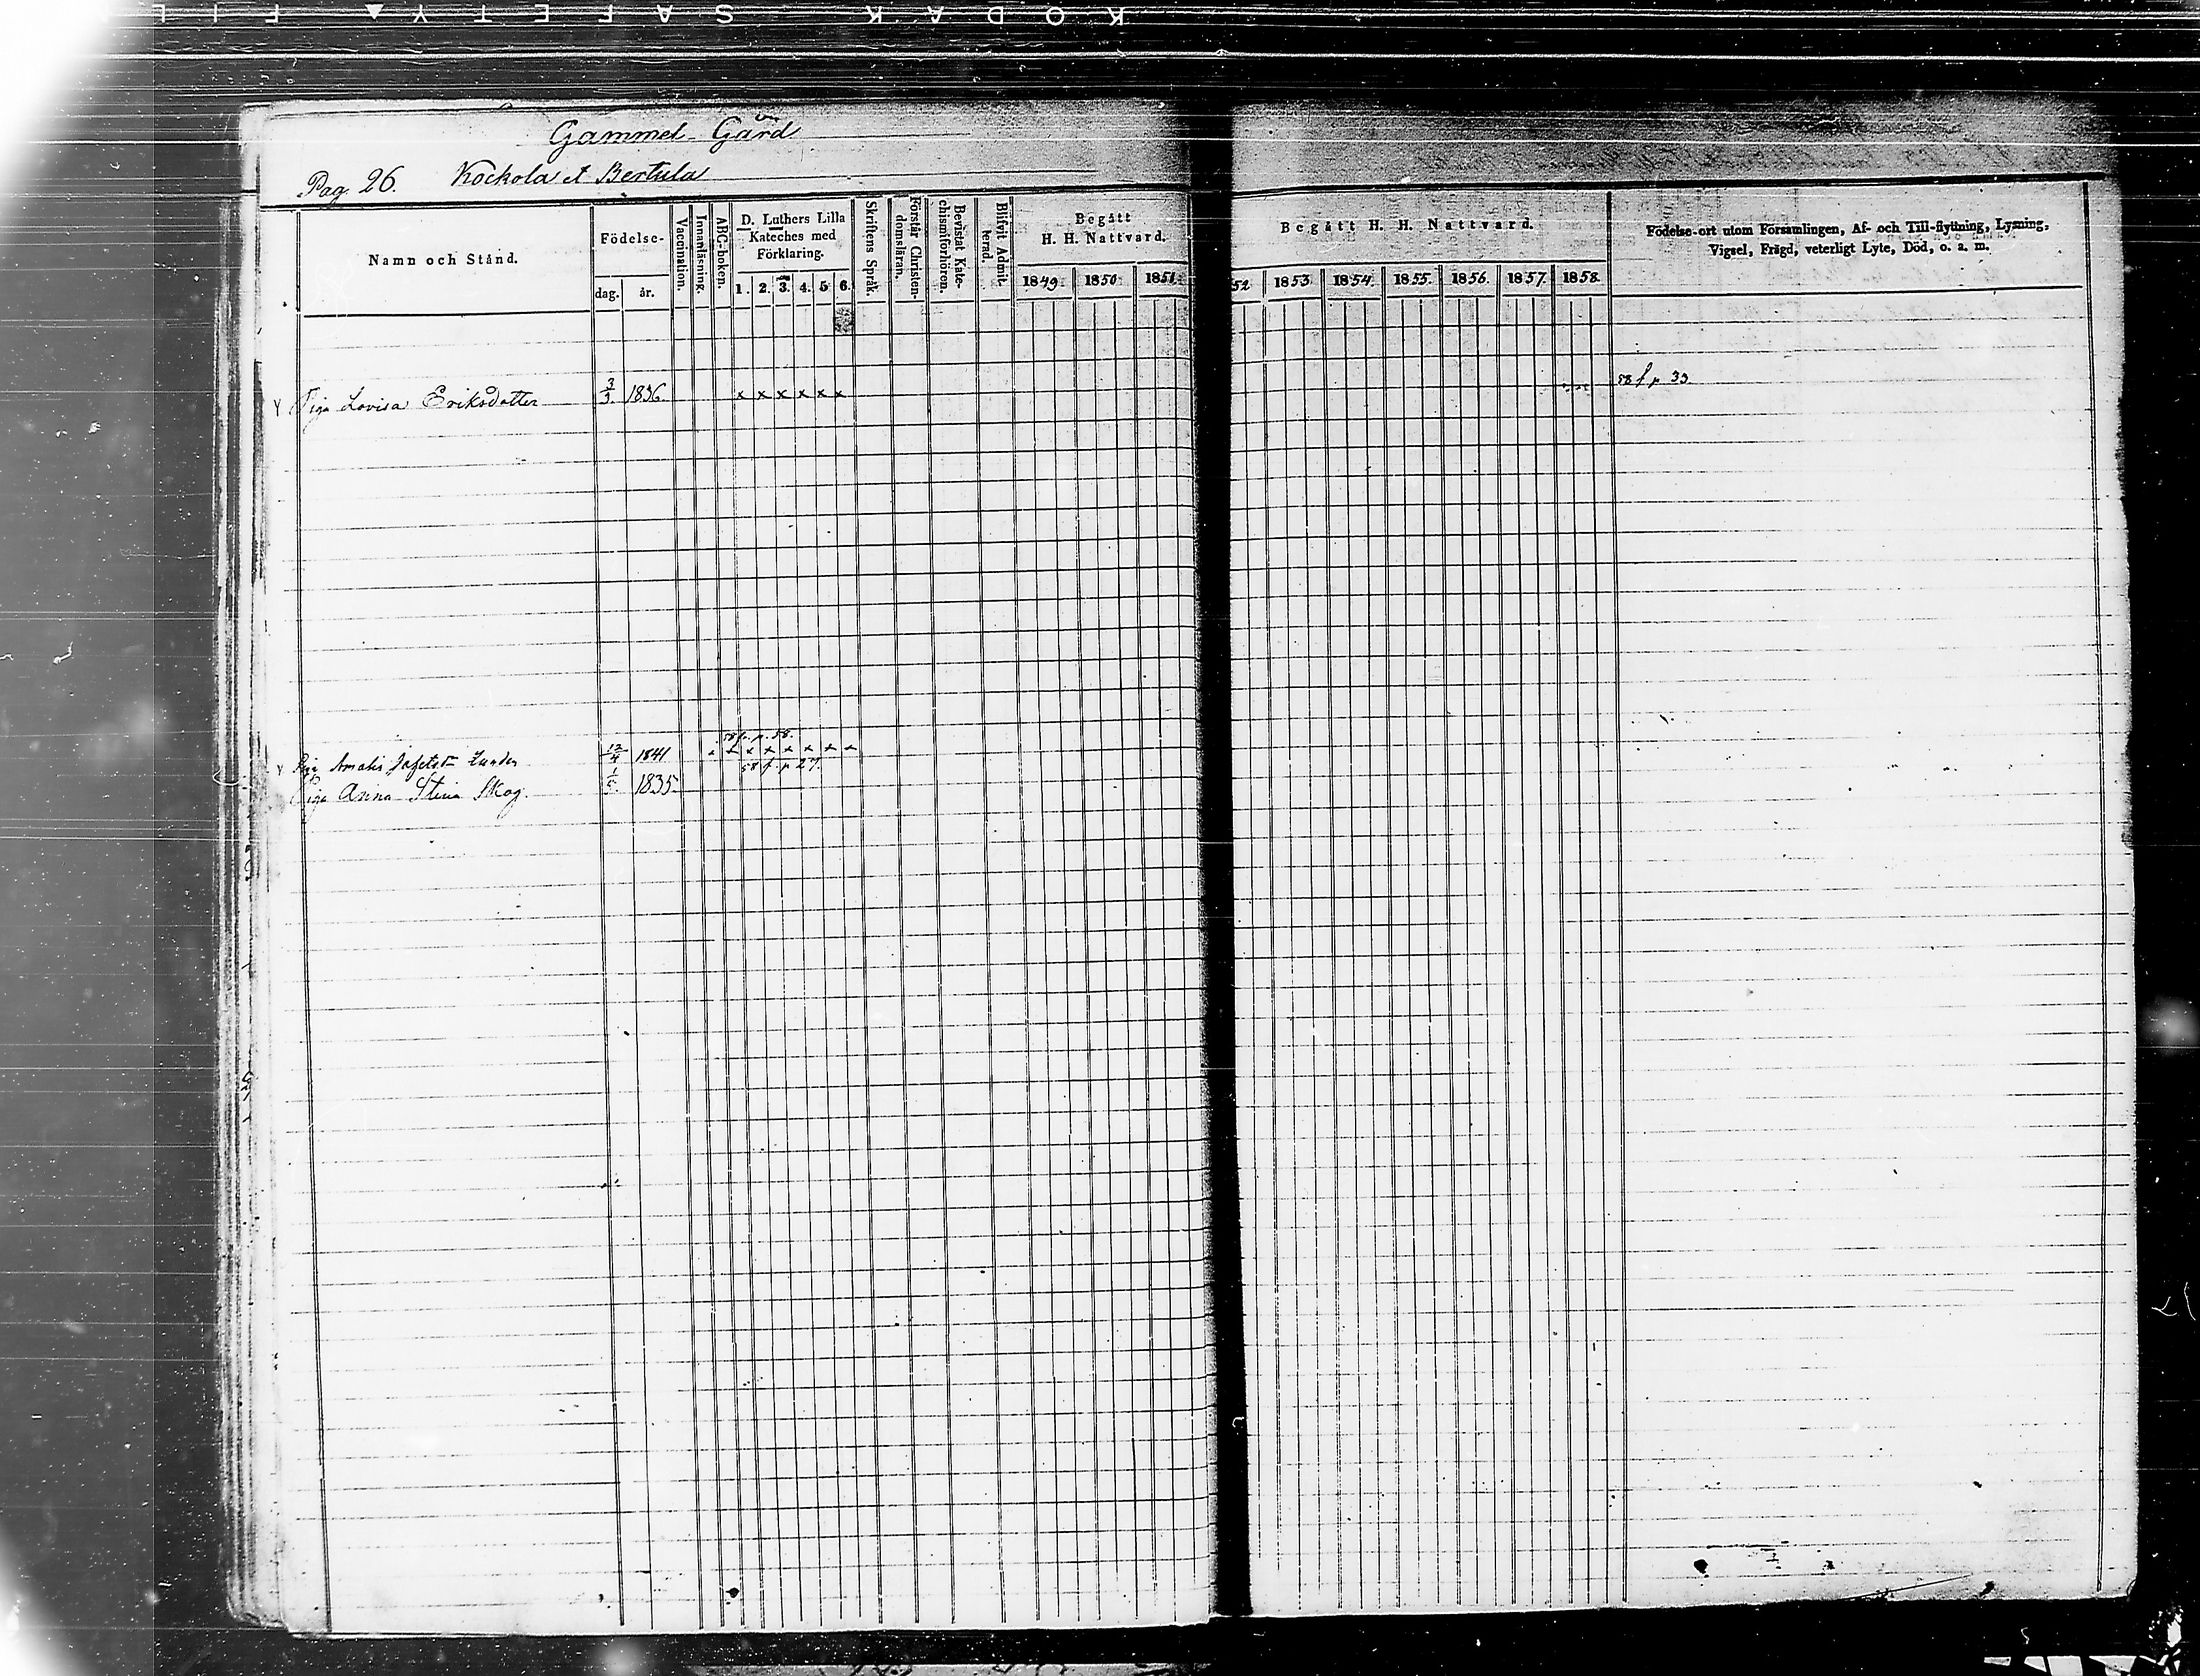 KODAK SAFETY FIL
Gammel Gård
Pag 26. Kockola et Bertula
Namn och Stånd.
Födelse-
dag. år.
Vaccination.
Innanläsning.
ABC-boken.
D. Luthers Lilla
Kateches med
Förklaring.
1. 2. 3. 4. 5 6.
Skriftens Språk.
Förstår Christen-
domsläran.
Bevistat Kate-
chismiförhören.
Blifvit Admit-
terad.
Begått
H. H. Nattvard.
1849. 1850. 1851.
Begått H. H. Nattvard.
52 1853. 1854. 1855. 1856. 1857. 1858.
Födelse-ort utom Församlingen, Af- och Till-flyttning, Lysning,
Vigsel, Frägd, veterligt Lyte, Död, o. a. m.
Piga Lovisa Eriksdotter 3/3. 1836. x x x x x x 58 f. p 33
58 f. p. 58.
Piga Amalis Jafetsdr 12/4 1841 x x x x x x x
58 f. p 27.
Piga Anna Stina Skog. 1/5. 1835.